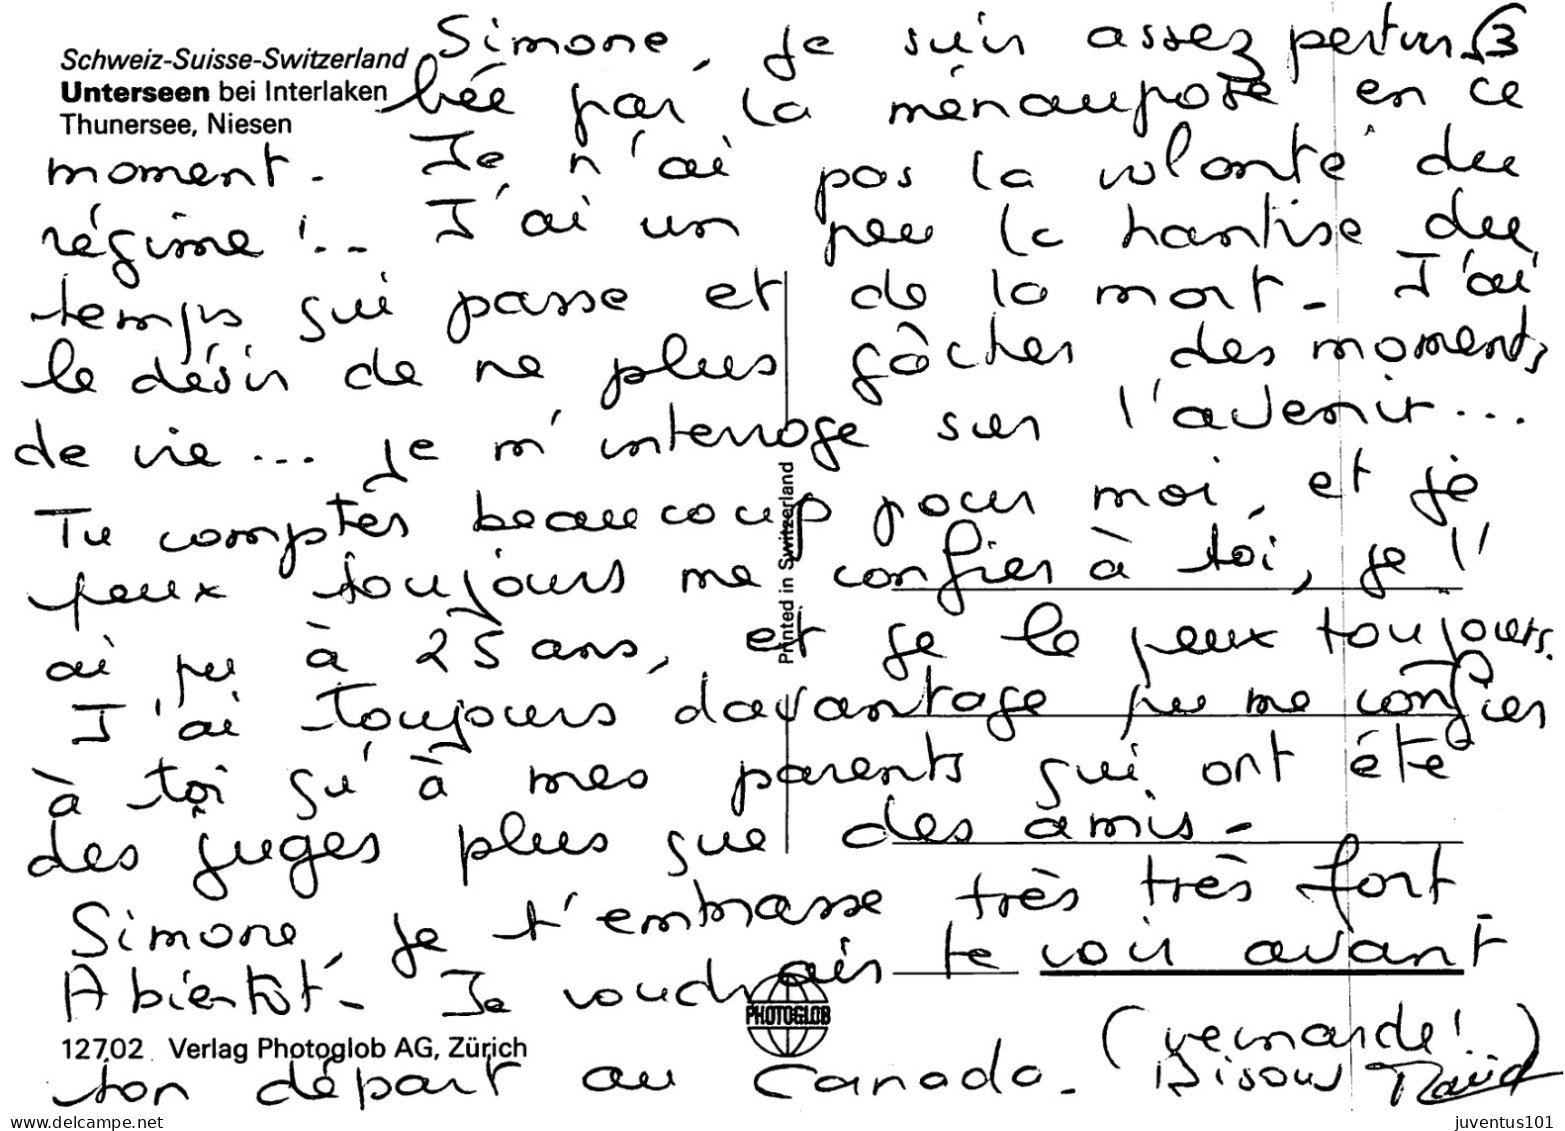 Schweiz-Suisse-Switzerland
Unterseen bei Interlaken
Thunersee, Niesen
3
Simone, je suis assez pertur
bée par la ménaupose en ce
moment. Je n'ai pas la volonté du
régime !.. J'ai un peu la hantise du
temps qui passe et de la mort. J'ai
le désir de ne plus gâcher des moments
de vie ... je m'interroge sur l'avenir...
Tu comptes beaucoup pour moi, et je
peux toujours me confier à toi, je l'
ai pu à 25 ans, et je le peux toujours.
J'ai toujours davantage pu me confier
à toi qu'à mes parents qui ont été
des juges plus que des amis.
Simone, je t'embrasse très très fort
A bientôt. Je voudrais te voir avant
ton départ au Canada. Bisous
Printed in Switzerland
PHOTOGLOB
12702 Verlag Photoglob AG, Zürich
delcampe.net
juventus101